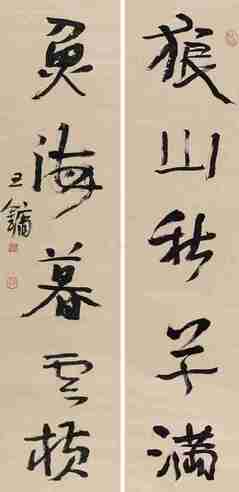 狼山秋草滿
魚海暮云横
王鏞